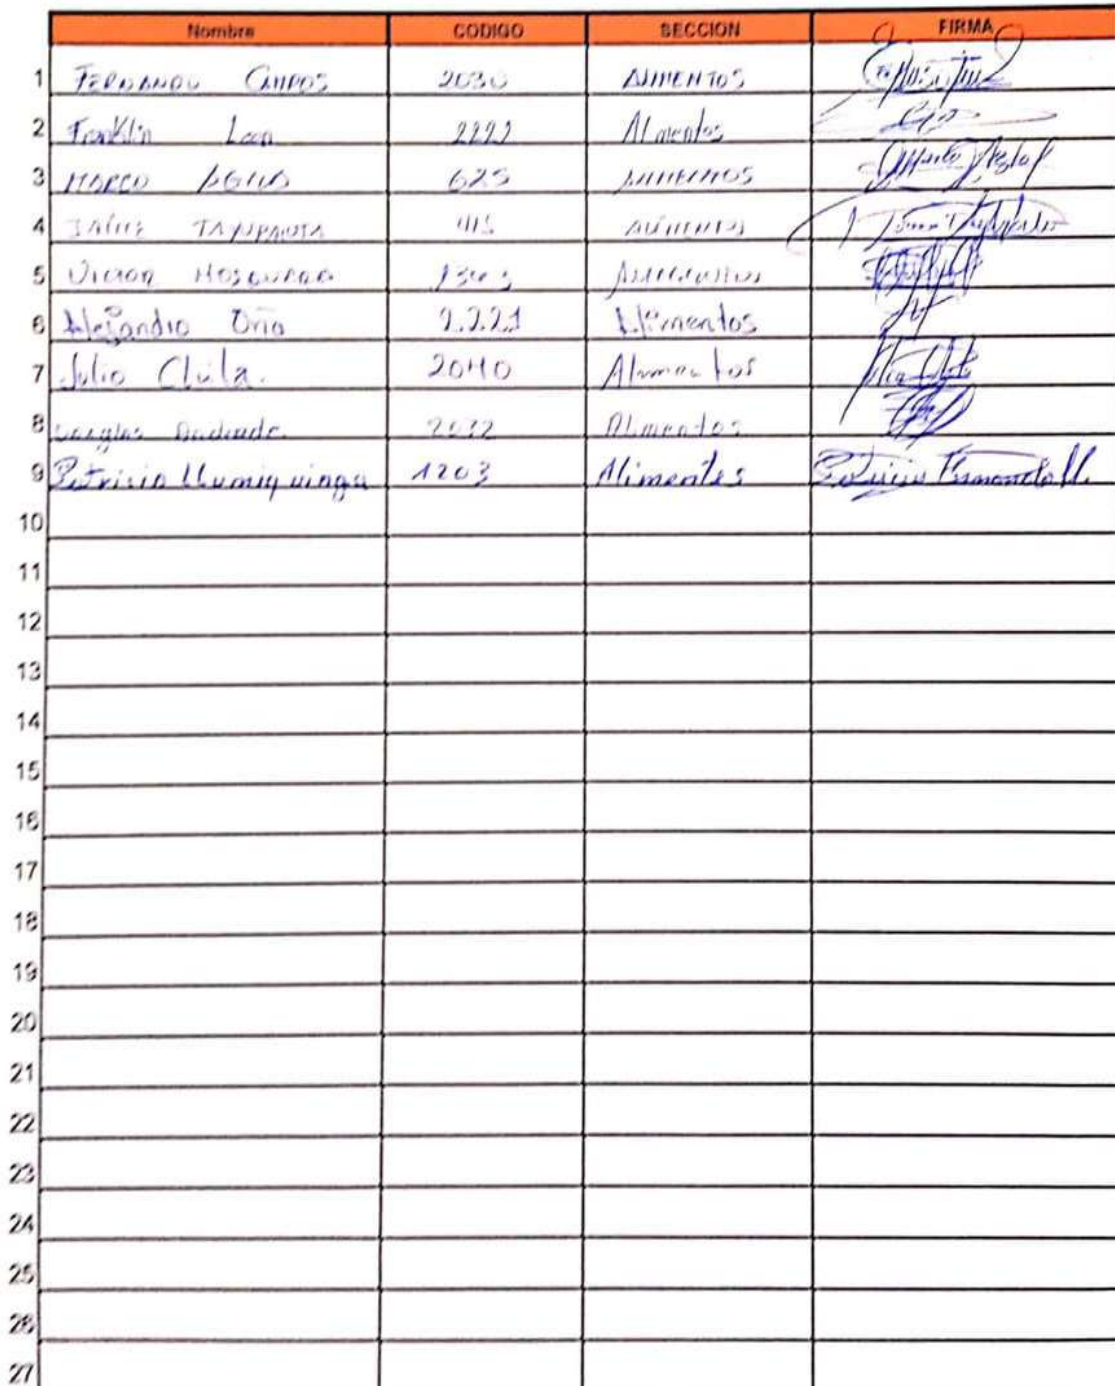 Nombre CODIGO SECCION FIRMA
1 FERNANDO CAMPOS 2030 ALIMENTOS
2 Franklin Leon 2222 Alimentos
3 MARCO 625 ALIMENTOS
4 JAIME TAYUPANTA ALIMENTOS
5 VICTOR MOSQUERA ALIMENTOS
6 Alejandro Oña 2221 Alimentos
7 Julio Chila. 2040 Alimentos
8 Douglas Andrade 2032 Alimentos
9 Patricio Llumiquinga 1203 Alimentos Patricio Fernando Ll.
10
11
12
13
14
15
16
17
18
19
20
21
22
23
24
25
26
27